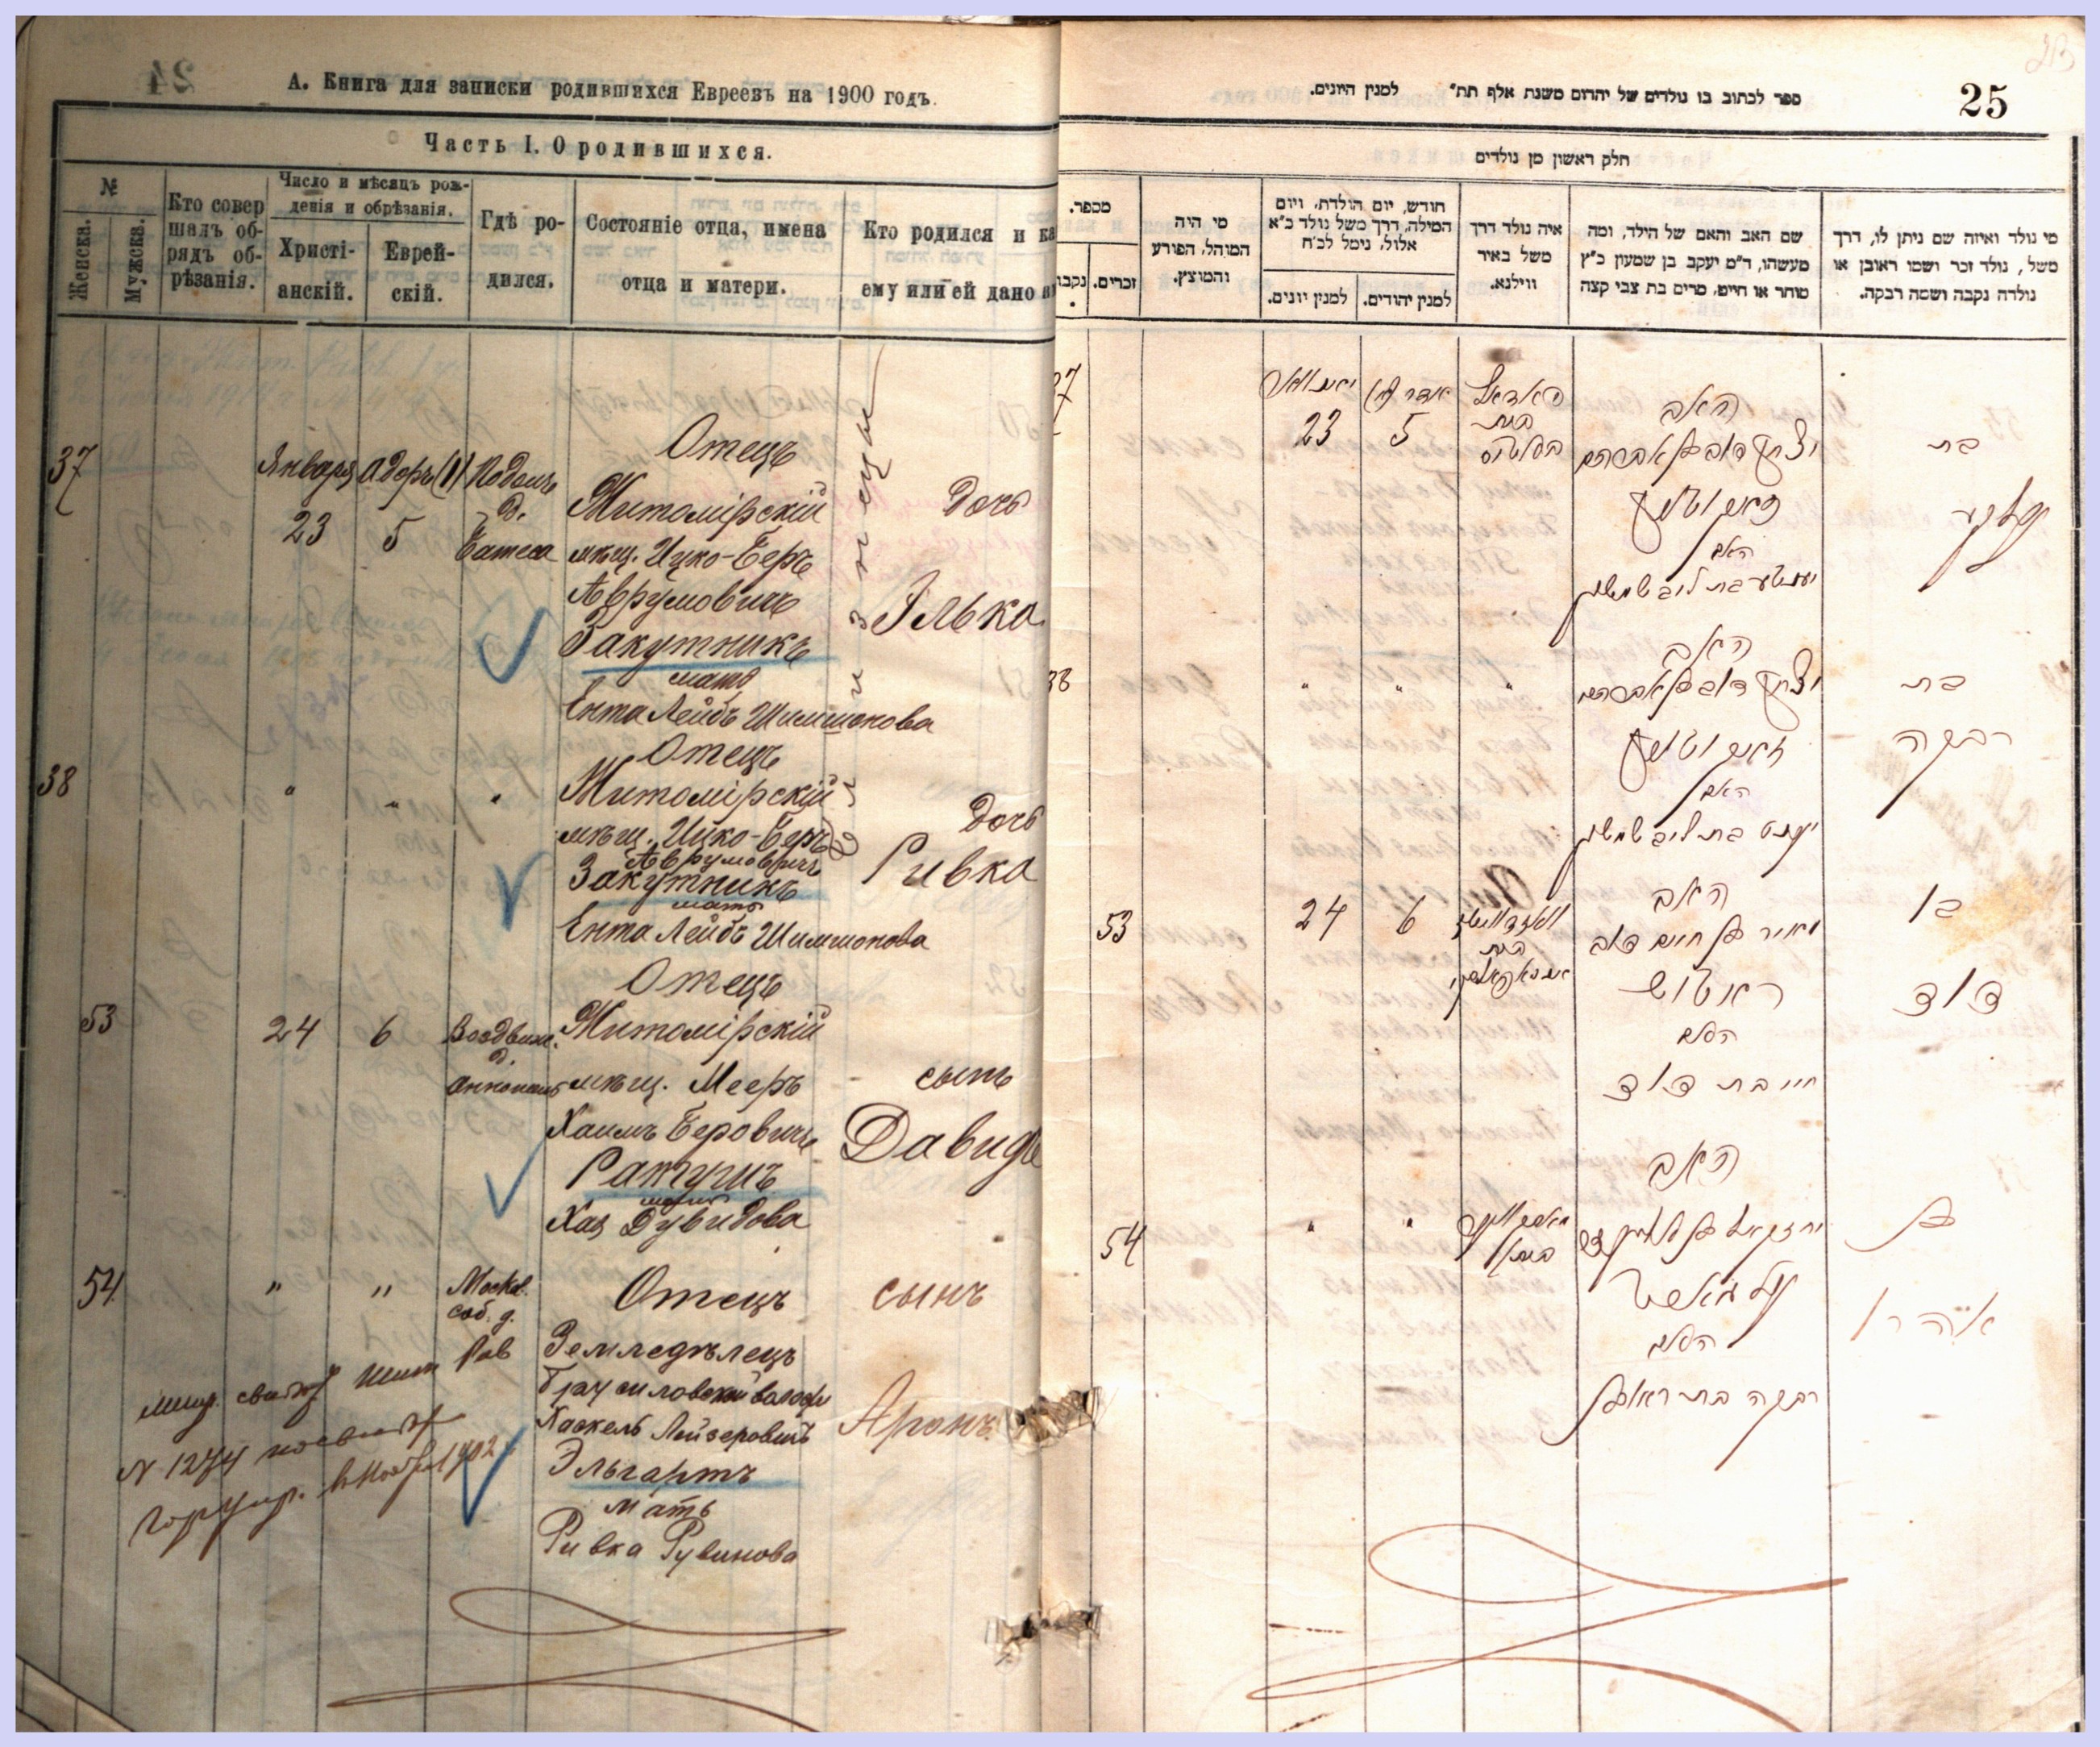 А. Книга для записки родившихся Евреевъ на 1900 годъ.
Часть I. О родившихся.
№
Женска.
Мужска.
Кто совер
шалъ об-
рядъ об-
рѣзанія.
Число и мѣсяцъ рож-
денія и обрѣзанія.
Христі-
анскій.
Еврей-
скій.
Гдѣ ро-
дился.
Состояніе отца, имена
отца и матери.
Кто родился и ка
ему или ей дано и
37
Января
23
Адоръ (1)
5
Подолъ
д.
Отецъ
Житомірскій
мѣщ. Ицко-Беръ
Аврумовичъ
Закутникъ
мать
Ента Лейбъ Шимшонова
Дочь
Элька
близнецы
38
"
"
"
Отецъ
Житомірскій
мѣщ. Ицко-Беръ
Аврумовичъ
Закутникъ
мать
Ента Лейбъ Шимшонова
Дочь
Ривка
53
24
6
Воздвиж.
д.
Отецъ
Житомірскій
мѣщ. Мееръ
Хаимъ Беровичъ
Ратушъ
мать
Хая Дувидова
сынъ
Давидъ
54
"
"
Москов.
соб. д.
Отецъ
Земледѣлецъ
Брусиловской волости
Хаскель Лейзеровичъ
Эльгартъ
мать
Ривка Рувинова
сынъ
Аронъ
25
ספר לכתוב בו נולדים של יהודים משנת אלף תת״ למנין היונים.
חלק ראשון מן נולדים
מספר.
נקבו
זכרים.
מי היה
המוהל, הפורע
והמוצץ.
חודש, יום הולדת, ויום
המילה, דרך משל נולד כ״א
אלול, נימל לכ״ח
למנין יונים.
למנין יהודים.
איה נולד דרך
משל באיר
ווילנא.
שם האב והאם של הילד, ומה
מעשהו, ד״מ יעקב בן שמעון כ״ץ
סוחר או חייט, מרים בת צבי קצה
מי נולד ואיזה שם ניתן לו, דרך
משל, נולד זכר ושמו ראובן או
נולדה נקבה ושמה רבקה.
37
יאנואר
23
אדר (א)
5
פאדאל
בית
האב
יצחק דוב בן אברהם
זאקוטניק
האם
יענטע בת ליב שמשון
בת
עלקע
38
"
"
"
האב
יצחק דוב בן אברהם
זאקוטניק
האם
יענטע בת ליב שמשון
בת
רבקה
53
24
6
בית
האב
מאיר בן חיים דוב
ראטוש
האם
חי׳ בת דוד
בן
דוד
54
"
"
האב
האם
רבקה בת ראובן
בן
אהרן